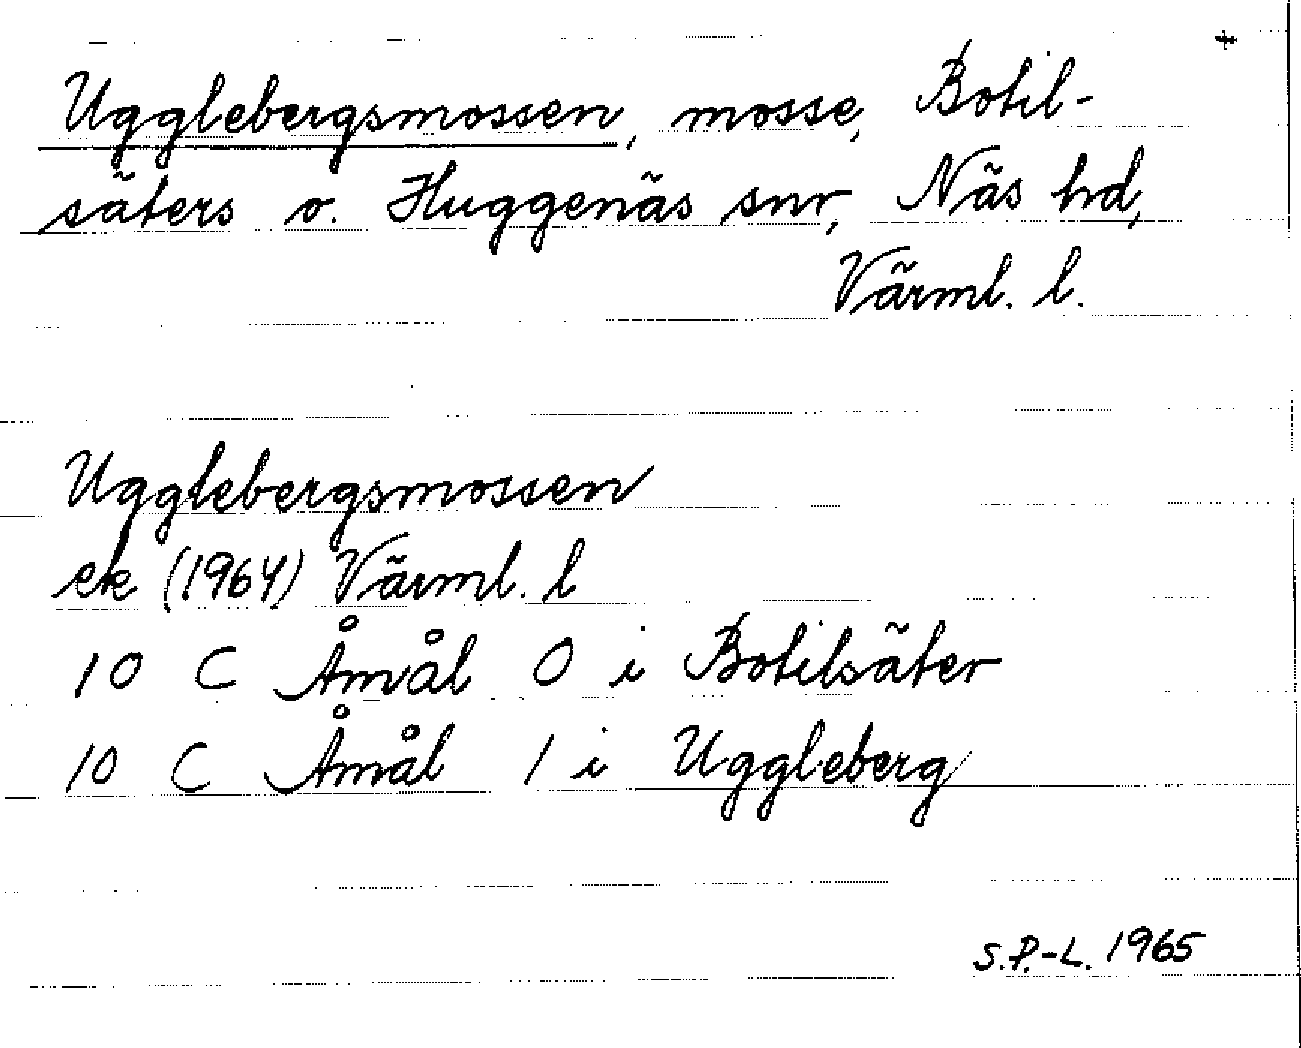 Ugglebergsmossen, mosse, Botil-
säters o. Huggenäs snr, Näs hd,
Värml. l.
Ugglebergsmossen
ek (1964) Värml. l
10 C Åmål O i Botilsäter
10 C Åmål 1 i Uggleberg
S.P.-L. 1965